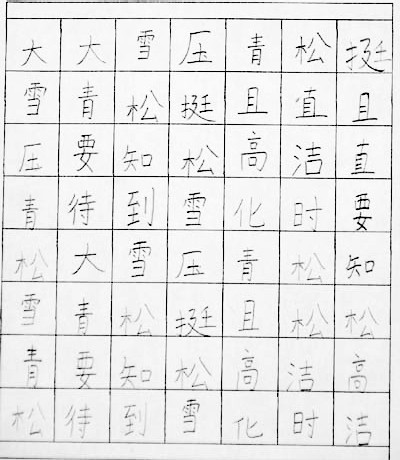 大大雪压青松挺
雪青松挺且直且
压要知松高洁直
青待到雪化时要
松大雪压青松知
雪青松挺且松松
青要知松高洁高
松待到雪化时洁